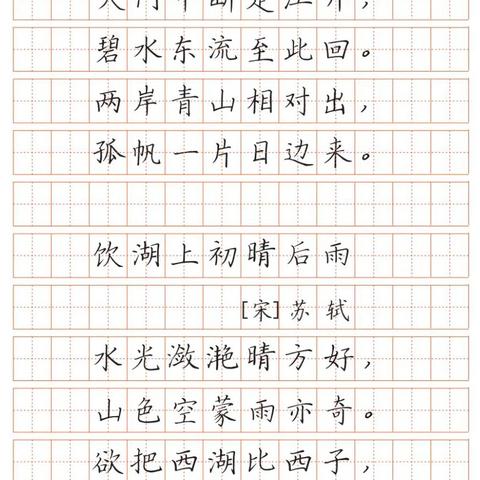 天门中断楚江开，
碧水东流至此回。
两岸青山相对出，
孤帆一片日边来。
饮湖上初晴后雨
[宋]苏 轼
水光潋滟晴方好，
山色空蒙雨亦奇。
欲把西湖比西子，